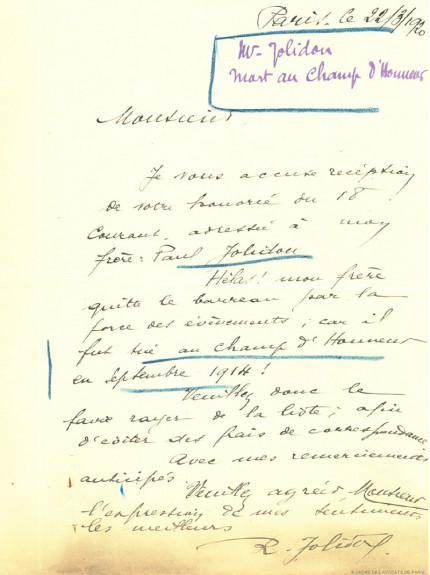 Paris - le 22/3/1920
Mr Jolidon
Mort au Champ d'Honneur
Monsieur
Je vous accuse reception
de votre honorée du 18
Courant, adressée à mon
frère: Paul Jolidon
Hélas! mon frère
quitte le barreau par la
force des évènements; car il
fut tué au Champ d'Honneur
en Septembre 1914!
Veuillez donc le
faire rayer de la liste; afin
d'éviter des frais de correspondance
Avec mes remerciements
anticipés
Veuillez agréer, Monsieur
l'expression de mes sentiments
les meilleurs
R. Jolidon
© ORDRE DES AVOCATS DE PARIS